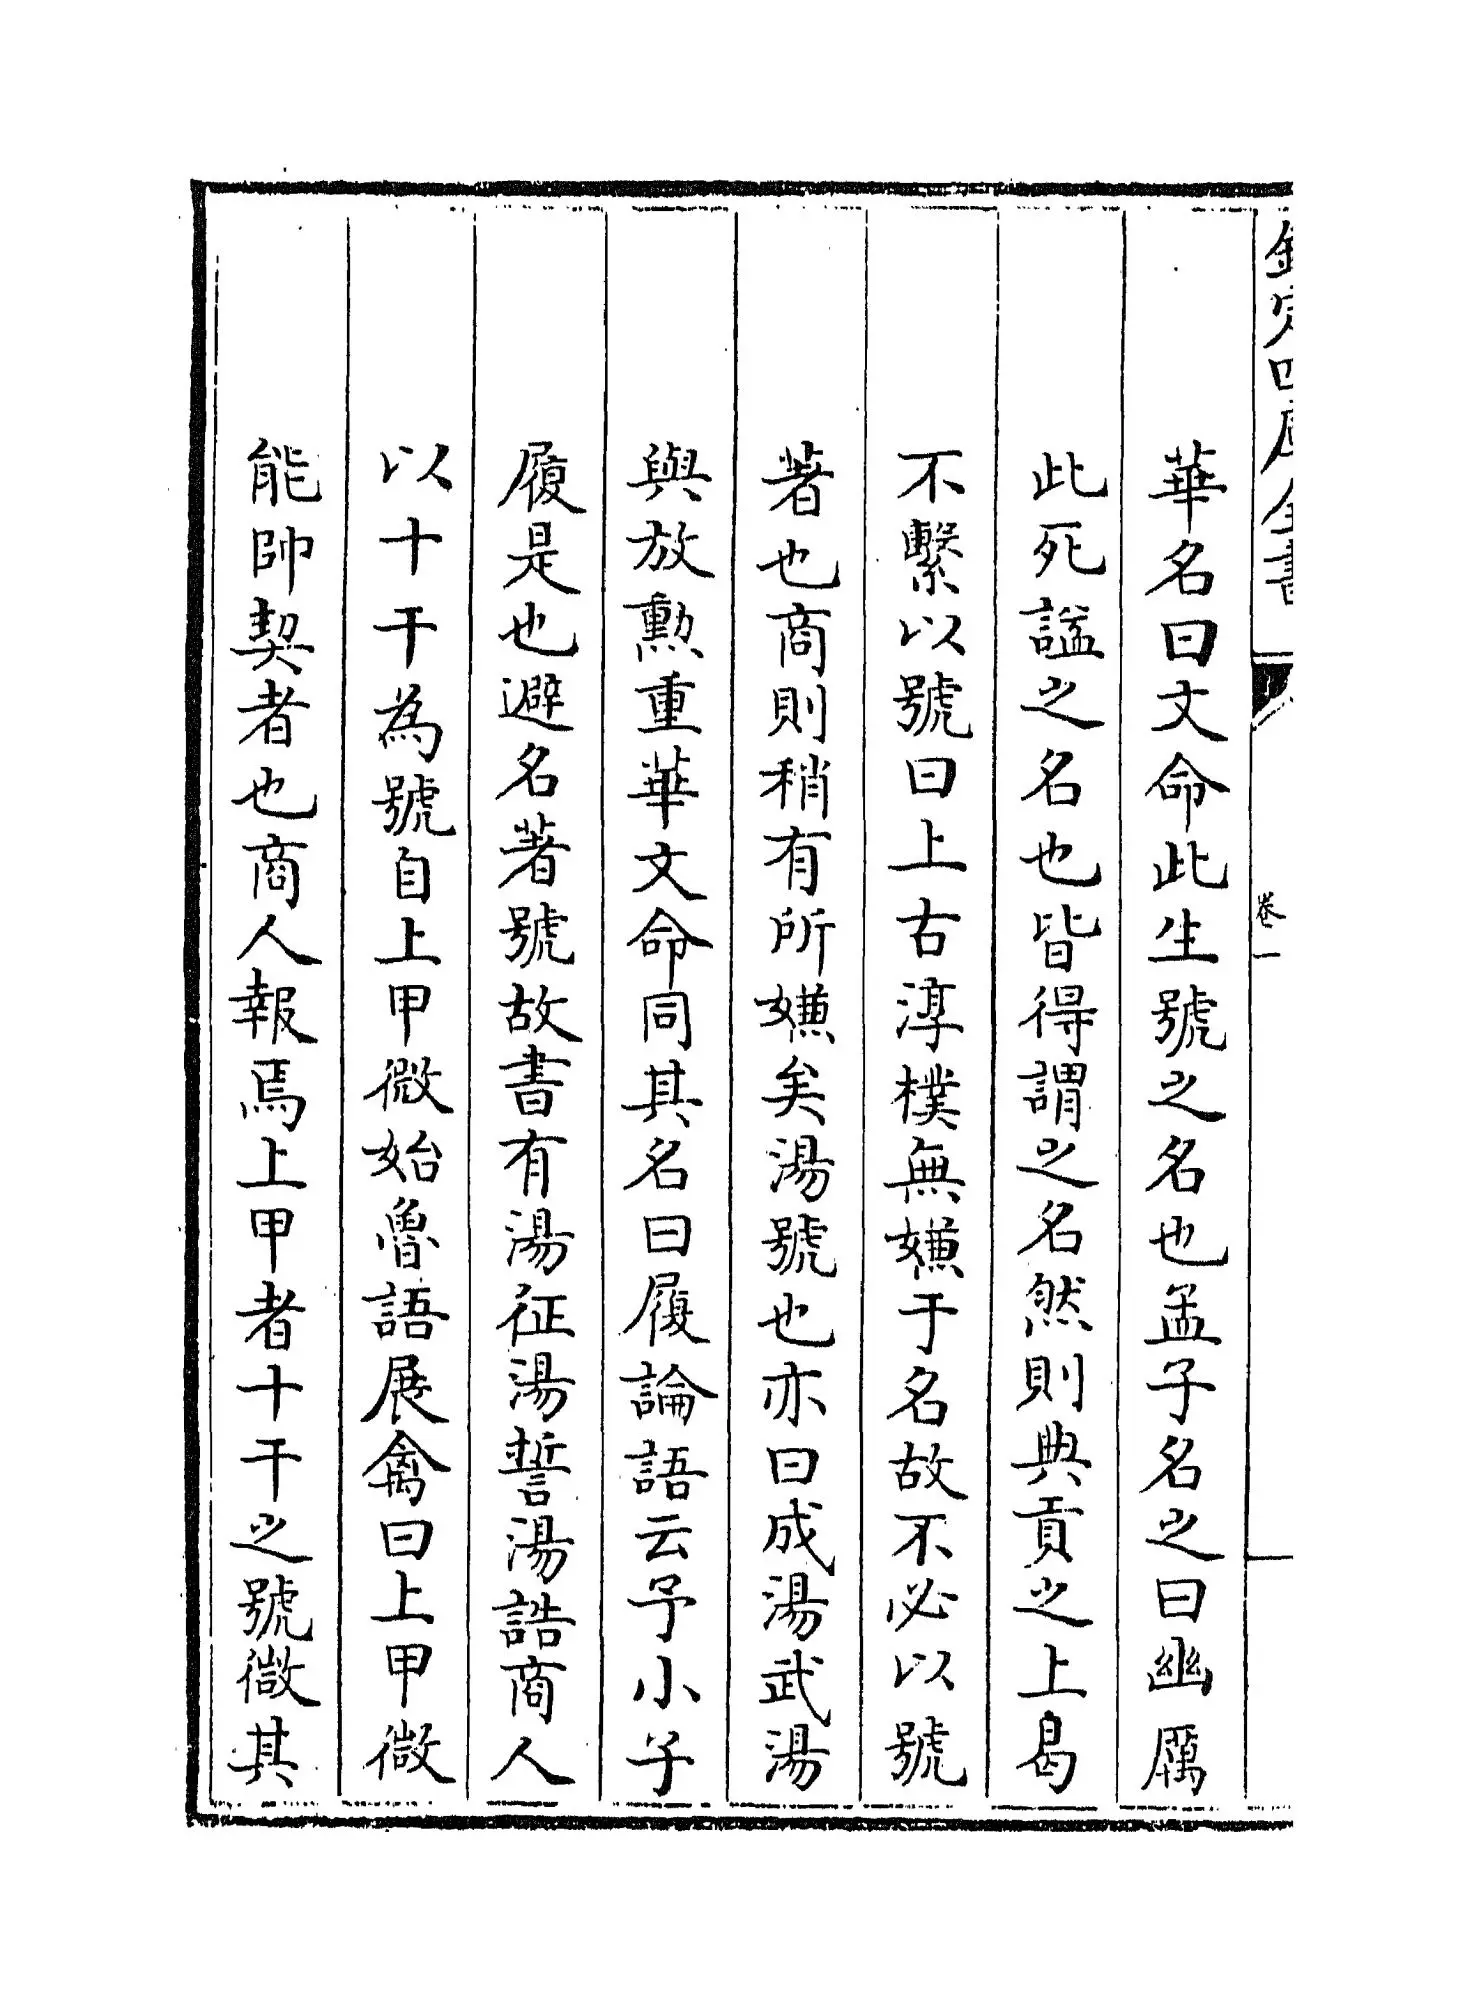 欽定四庫全書
卷一
華名曰文命此生號之名也孟子名之曰幽厲
此死謚之名也皆得謂之名然則典貢之上曷
不繫以號曰上古淳樸無嫌于名故不必以號
著也商則稍有所嫌矣湯號也亦曰成湯武湯
與放勲重華文命同其名曰履論語云予小子
履是也避名著號故書有湯征湯誓湯誥商人
以十干為號自上甲微始魯語展禽曰上甲微
能帥契者也商人報焉上甲者十干之號微其